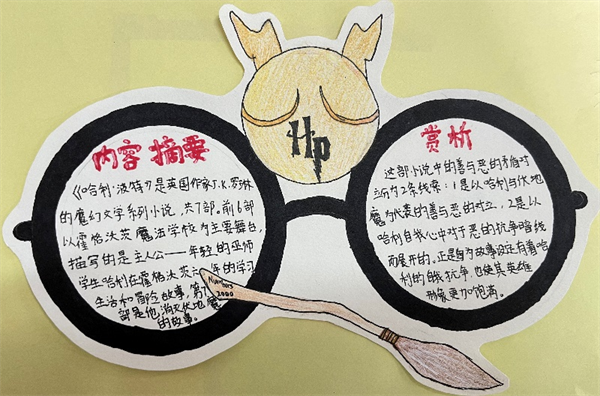 内容摘要
《哈利·波特》是英国作家J.K.罗琳
的魔幻文学系列小说，共7部。前6部
以霍格沃茨魔法学校为主要舞台，
描写的是主人公——年轻的巫师
学生哈利在霍格沃茨六年的学习
生活和冒险故事，第7
部是他消灭伏地魔
的故事。
HP
赏析
这部小说中的善与恶的矛盾对
立分为2条线索：1是从哈利与伏地
魔为代表的善与恶的对立，2是以
哈利自我心中对于恶的抗争暗线
而展开的，正是因为故事设定有着哈
利的自我抗争，也使其英雄
形象更加饱满。
Nimbus
2000